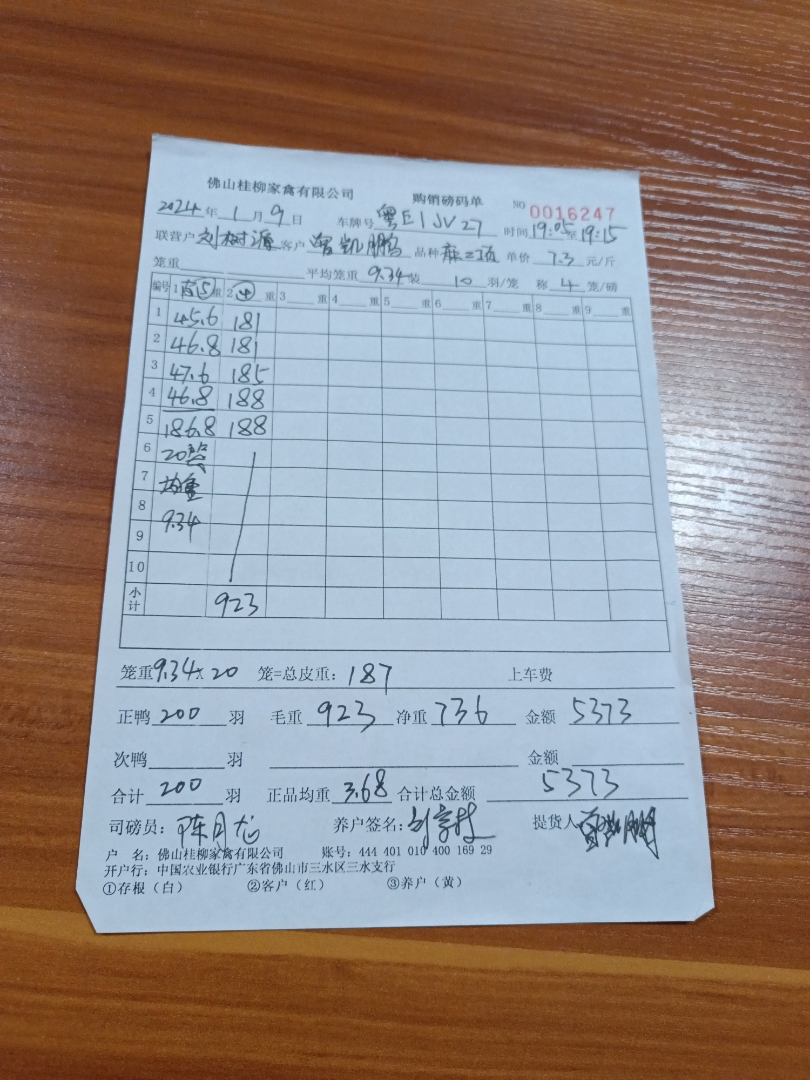 佛山桂柳家禽有限公司 购销磅码单 NO 0016247
2024年1月9日 车牌号 粤E1JV27 时间 19:05至19:15
联营户 刘树源 客户 曾凯鹏 品种 单价 7.3 元/斤
笼重 平均笼重 9.34 装 10 羽/笼 称 4 笼/磅
编号 1 ⑤ 重 2 ④ 重 3 重 4 重 5 重 6 重 7 重 8 重 9 重
1 45.6 181
2 46.8 181
3 47.6 185
4 46.8 188
5 186.8 188
6 20
7 均重
8 9.34
9
10
小计 923
笼重 9.34 x 20 笼=总皮重: 187 上车费
正鸭 200 羽 毛重 923 净重 736 金额 5373
次鸭 羽 金额
合计 200 羽 正品均重 3.68 合计总金额 5373
司磅员: 陈月 养户签名: 提货人
户 名: 佛山桂柳家禽有限公司 账号: 444 401 010 400 169 29
开户行: 中国农业银行广东省佛山市三水区三水支行
①存根(白) ②客户(红) ③养户(黄)